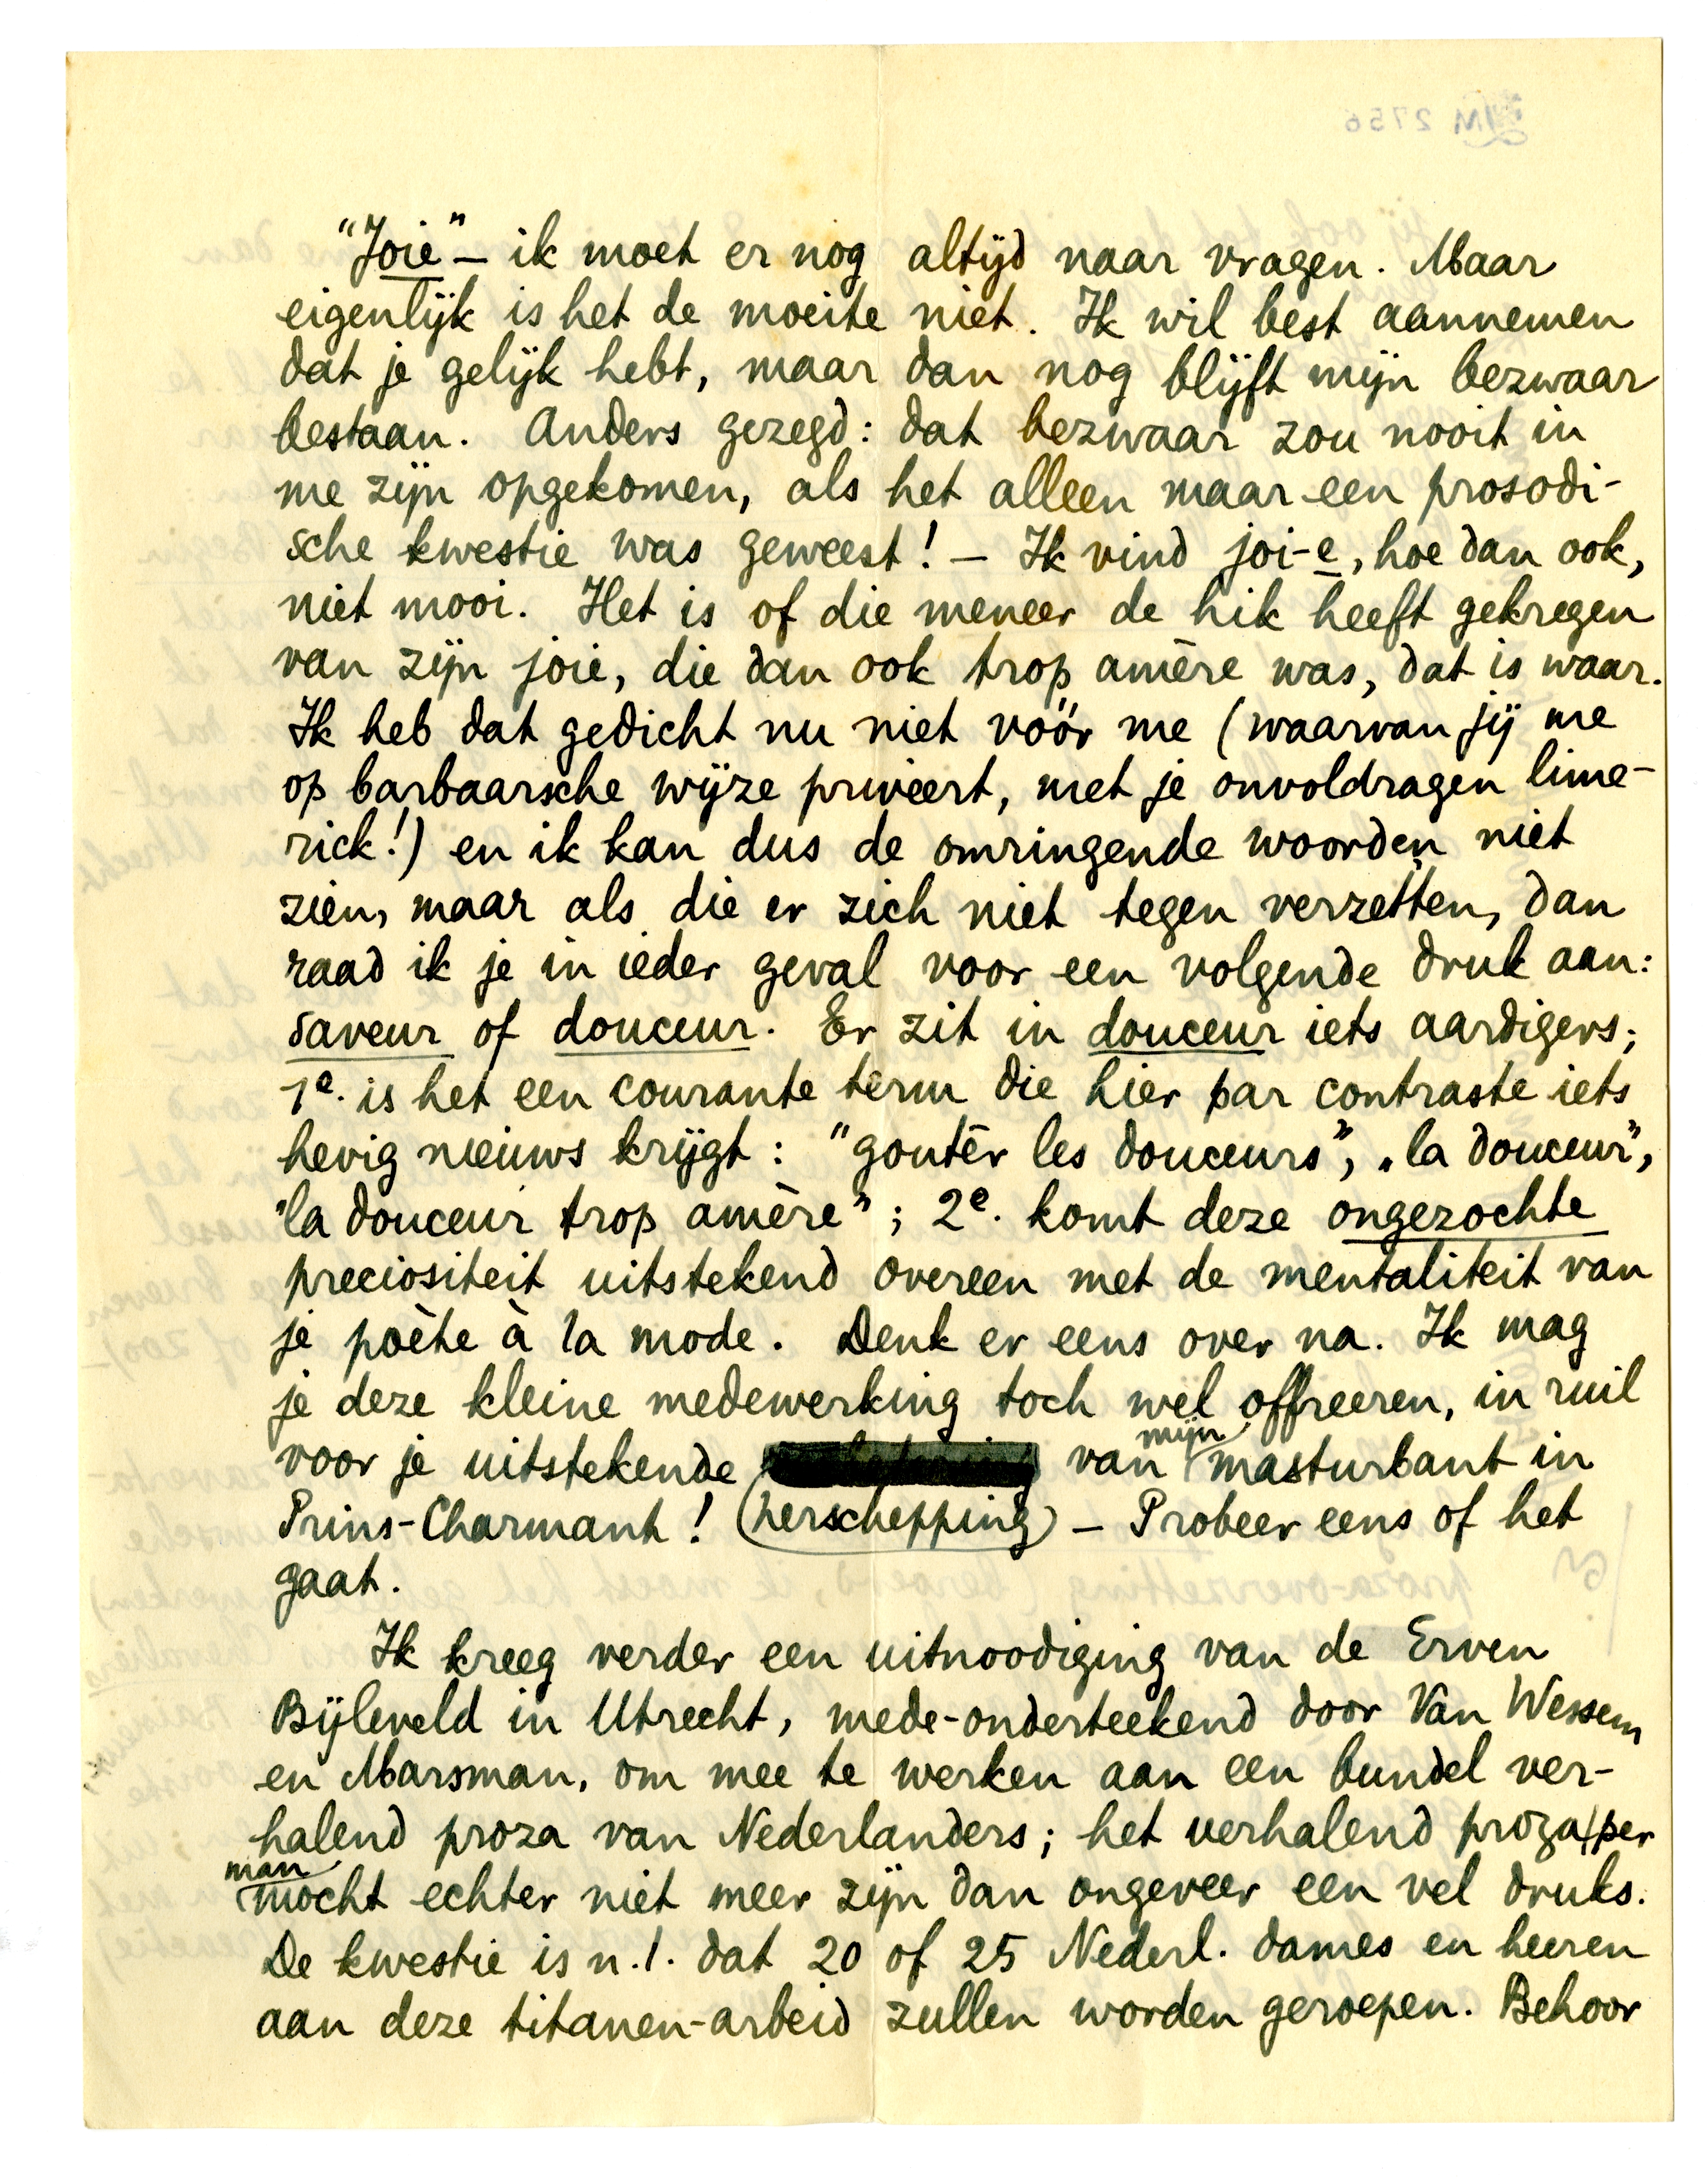 "Joie" – ik moet er nog altijd naar vragen. Maar
eigenlijk is het de moeite niet. Ik wil best aannemen
dat je gelijk hebt, maar dan nog blijft mijn bezwaar
bestaan. Anders gezegd: dat bezwaar zou nooit in
me zijn opgekomen, als het alleen maar een prosodi-
sche kwestie was geweest! – Ik vind joi-e, hoe dan ook,
niet mooi. Het is of die meneer de hik heeft gekregen
van zijn joie, die dan ook trop amère was, dat is waar.
Ik heb dat gedicht nu niet vóór me (waarvan jij me
op barbaarsche wijze priveert, met je onvoldragen lime-
rick!) en ik kan dus de omringende woorden niet
zien, maar als die er zich niet tegen verzetten, dan
raad ik je in ieder geval voor een volgende druk aan:
saveur of douceur. Er zit in douceur iets aardigers;
1e. is het een courante term die hier par contraste iets
hevig nieuws krijgt: "goutêr les douceurs", "la douceur",
"la douceur trop amère"; 2e. komt deze ongezochte
preciositeit uitstekend overeen met de mentaliteit van
je poète à la mode. Denk er eens over na. Ik mag
je deze kleine medewerking toch wel offreeren, in ruil
voor je uitstekende van mijn masturbant in
Prins-Charmant! (herschepping) – Probeer eens of het
gaat.
Ik kreeg verder een uitnoodiging van de Erven
Bijleveld in Utrecht, mede-onderteekend door Van Wessem
en Marsman, om mee te werken aan een bundel ver-
halend proza van Nederlanders; het verhalend proza per
man mocht echter niet meer zijn dan ongeveer een vel druks.
De kwestie is n.l. dat 20 of 25 Nederl. dames en heeren
aan deze titanen-arbeid zullen worden geroepen. Behoor
LM 2756